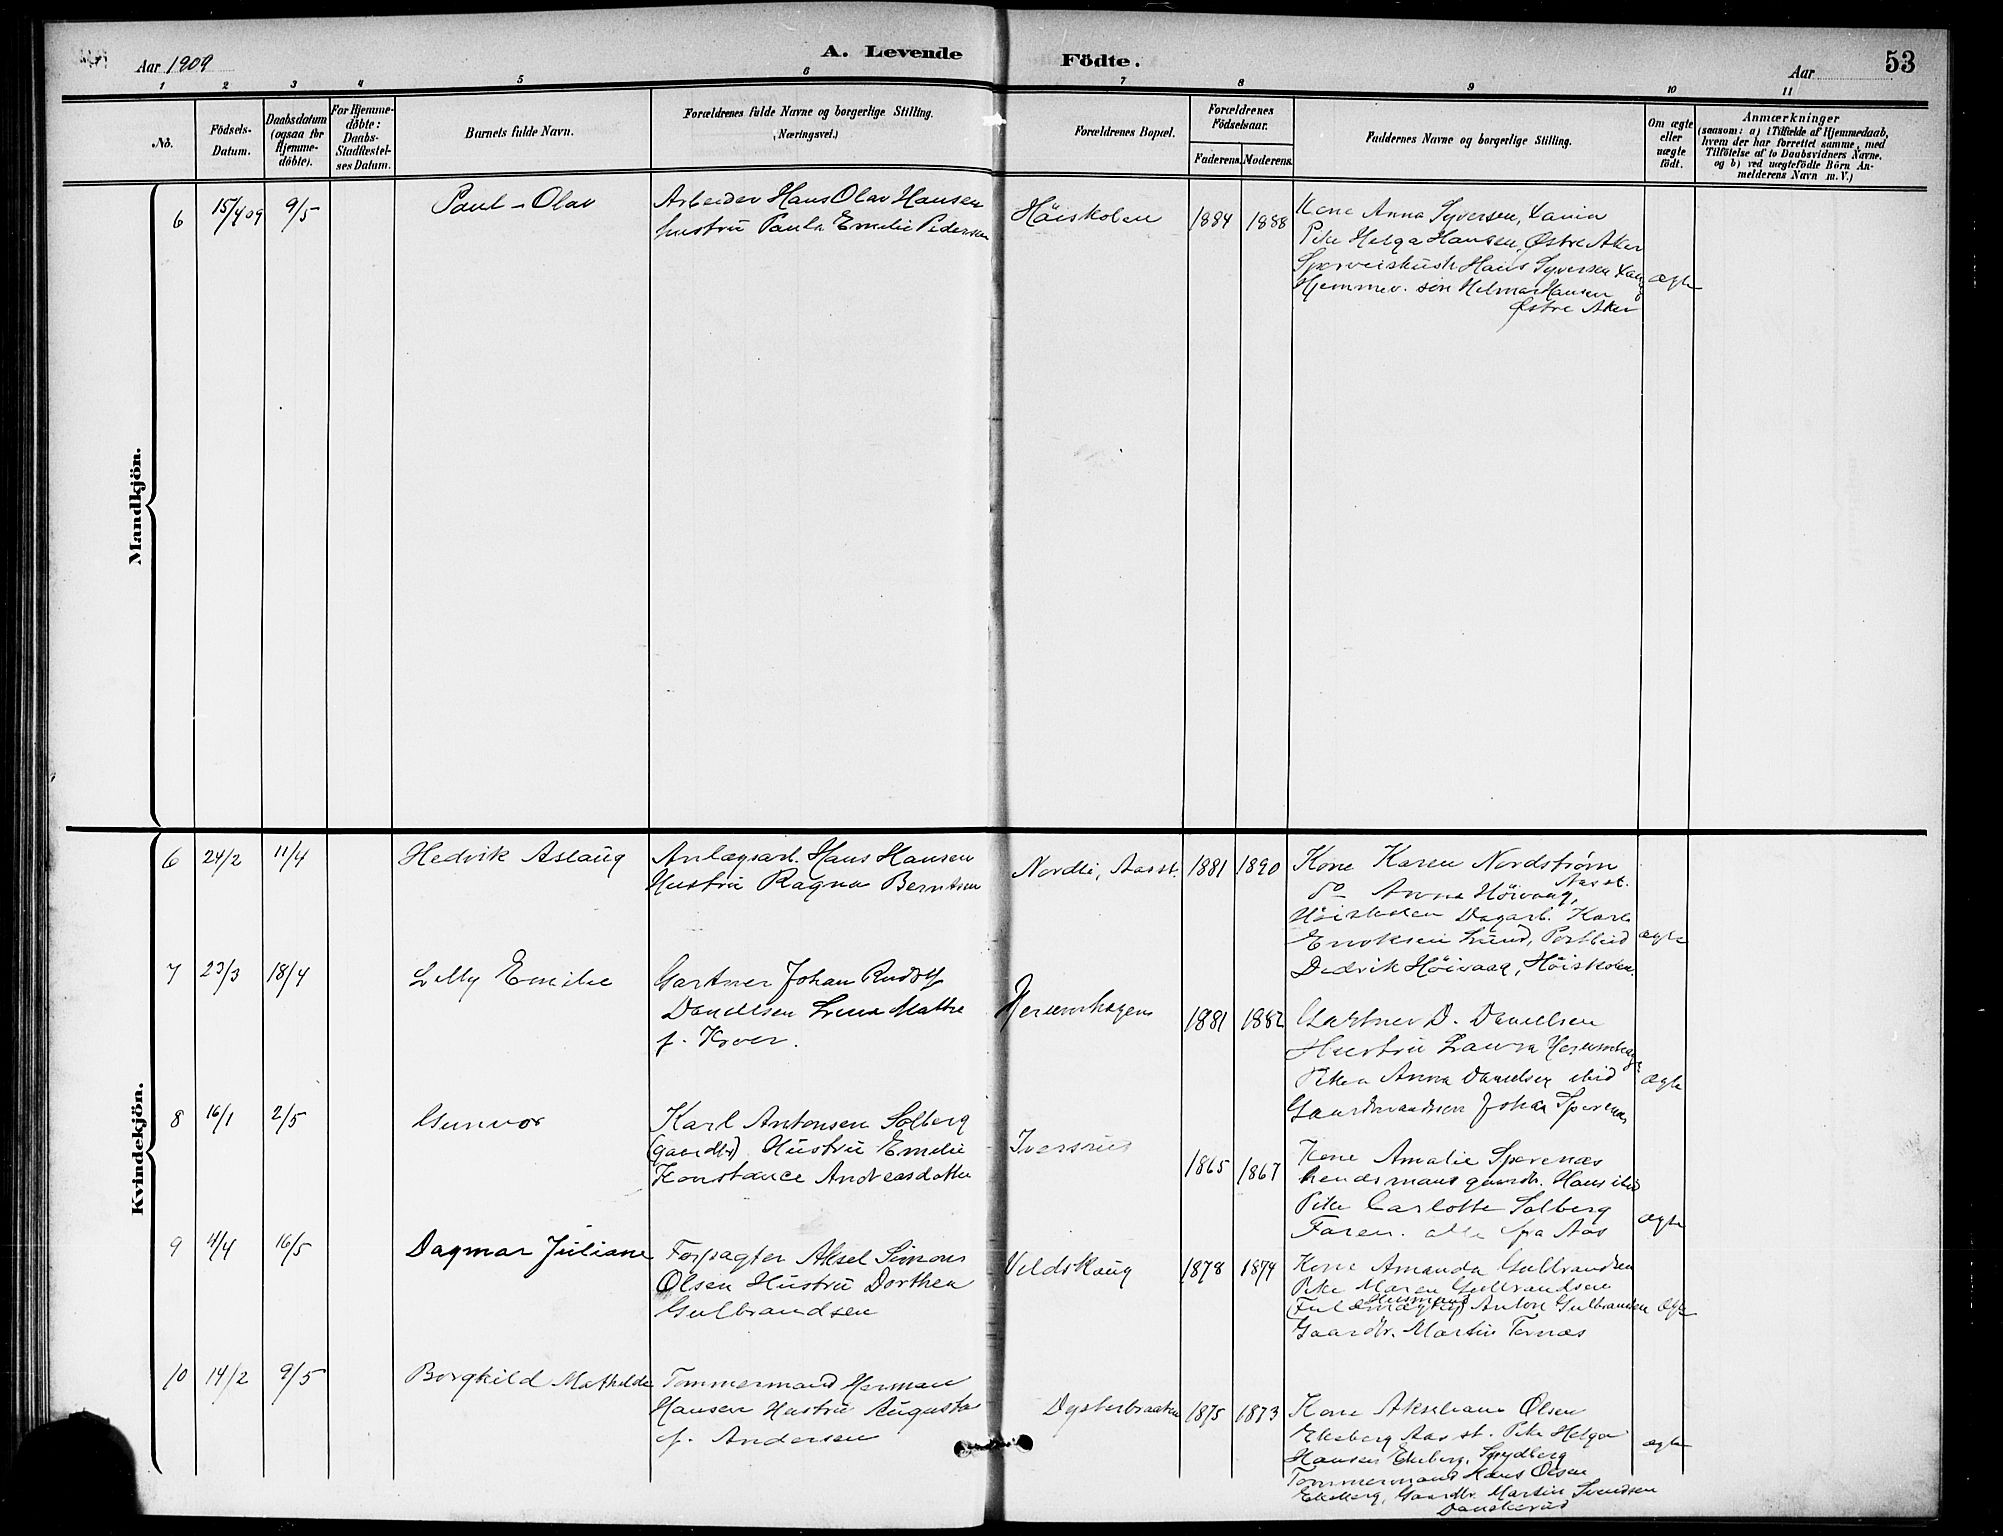 Aar 1909
A. Levende Födte.
Aar
53
1 2 3 4 5 6 7 8 9 10 11
No.
Födsels-Datum.
Daabsdatum (ogsaa for Hjemme-döbte).
For Hjemme-döbte: Daabs-Stadfæstel-ses Datum.
Barnets fulde Navn.
Forældrenes fulde Navne og borgerlige Stilling. (Næringsvei.)
Forældrenes Bopæl.
Forældrenes Födselsaar.
Faderens. Moderens.
Faddernes Navne og borgerlige Stilling.
Om ægte eller uægte födt.
Anmærkninger
(saasom: a) i Tilfælde af Hjemmedaab,
hvem der har forrettet samme, med
Tilföielse af to Daabsvidners Navne,
og b) ved uægtefödte Börn An-
melderens Navn m. V.)
Mandkjön.
6 15/4 09 9/5 Paul - Olav
Arbeider Hans Olav Hansen
hustru Paula Emilie Pedersen
Höiskolen 1884 1888
Kone Anna Syversen,
Pike Helga Hansen, Østre Aker
Hans Syversen
Hjemmev. søn Helmar Hansen
Østre Aker
ægte
Kvindekjön.
6 24/2 11/4 Hedvik Aslaug
Anlægsarb. Hans Hansen
Hustru Ragna Berntsen
Nordli, Aas st. 1881 1890
Kone Karen Nordstrøm
Aas st.
do Anna Höivaag,
Höiskolen Dagarb. Karl
Eriksen Lund, Postbud
Dedrik Höivaag, Höiskolen.
ægte
7 23/3 18/4 Lilly Emilie
Gartner Johan Rudolf
Danielsen Lina Mathea
f. Kroer.
Herumshagen 1881 1882
Gartner D. Danielsen
Hustru Laura Herumshagen
Piken Anna Danielsen ibid
Gaardmandsen Johan Sperenæs
ægte
8 16/1 2/5 Gunvor
Karl Antonsen Solberg
(gaardbr) Hustru Emilie
Konstance Andreasdatter
Iversrud 1865 1867
Kone Amalie Sperenæs
Lendsmans gaardbr. Hans ibid
Pike Carlotte Solberg
Faren. alle fra Aas
ægte
9 4/4 16/5 Dagmar Juliane
Forpagter Aksel Simon
Olsen Hustru Dorthea
Gulbrandsen
Vildskaug 1878 1879
Kone Amanda Gulbrandsen
Pike Maren Gulbrandsen
Husmand
Anton Gulbrandsen
Gaardbr. Martin Ternæs
ægte
10 14/2 9/5 Borghild Mathilde
Tømmermand Herman
Hansen Hustru Augusta
f. Andersen
Dysterbraaten 1875 1873
Kone Akseliane Olsen
Ekeberg Aas st. Pike Helga
Hansen Ekeberg, Spydberg
Tømmermand Hans Olsen
Ekeberg, Gaardbr. Martin Svendsen
Danskerud
ægte